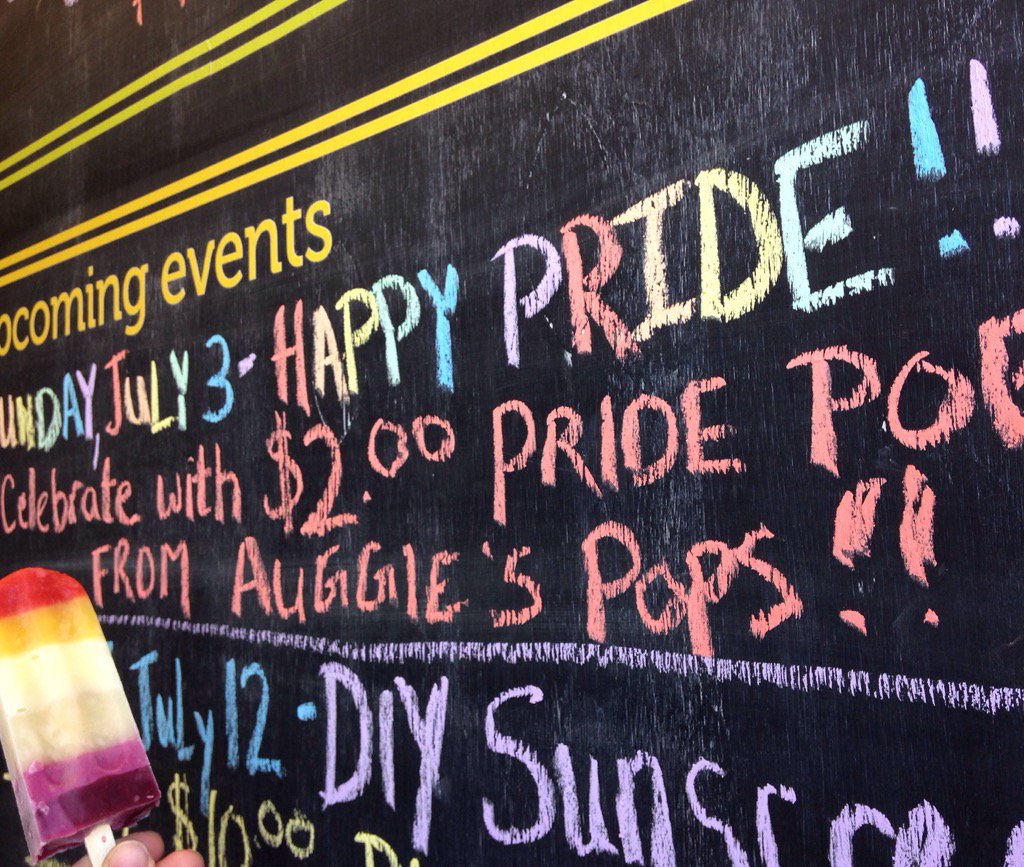 pcoming events
UNDAY, JULY 3 - HAPPY PRIDE!!
Celebrate with $2.00 PRIDE PO
FROM AUGGIE'S POPS!!
July 12 - DIY Sunscre
$10.00